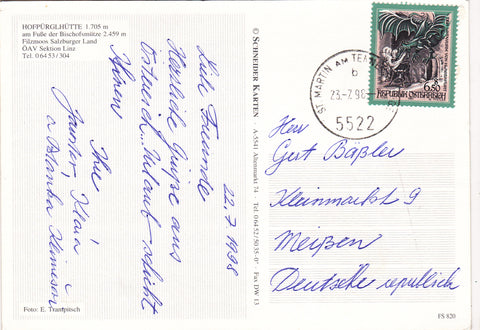 HOFPÜRGLHÜTTE 1.705 m
am Fuße der Bischofsmütze 2.459 m
Filzmoos Salzburger Land
ÖAV Sektion Linz
Tel. 0 64 53 / 304
22.7.1998
Liebe Freunde
Herzliche Grüße aus
Österreich. Urlaub
Ihnen
Ihre
Jaroslav, Klára
a Blanka
Foto: E. Trampitsch
© SCHNEIDER KARTEN A-5541 Altenmarkt 74 Tel. 0 64 52 / 50 35-0 Fax DW 13
ST. MARTIN AM
b
23.-7.98
5522
6.50
REPUBLIK ÖSTERREICH
Herr
Gert Bäßler
Kleinmarkt 9
Meißen
Deutsche republick
FS 820